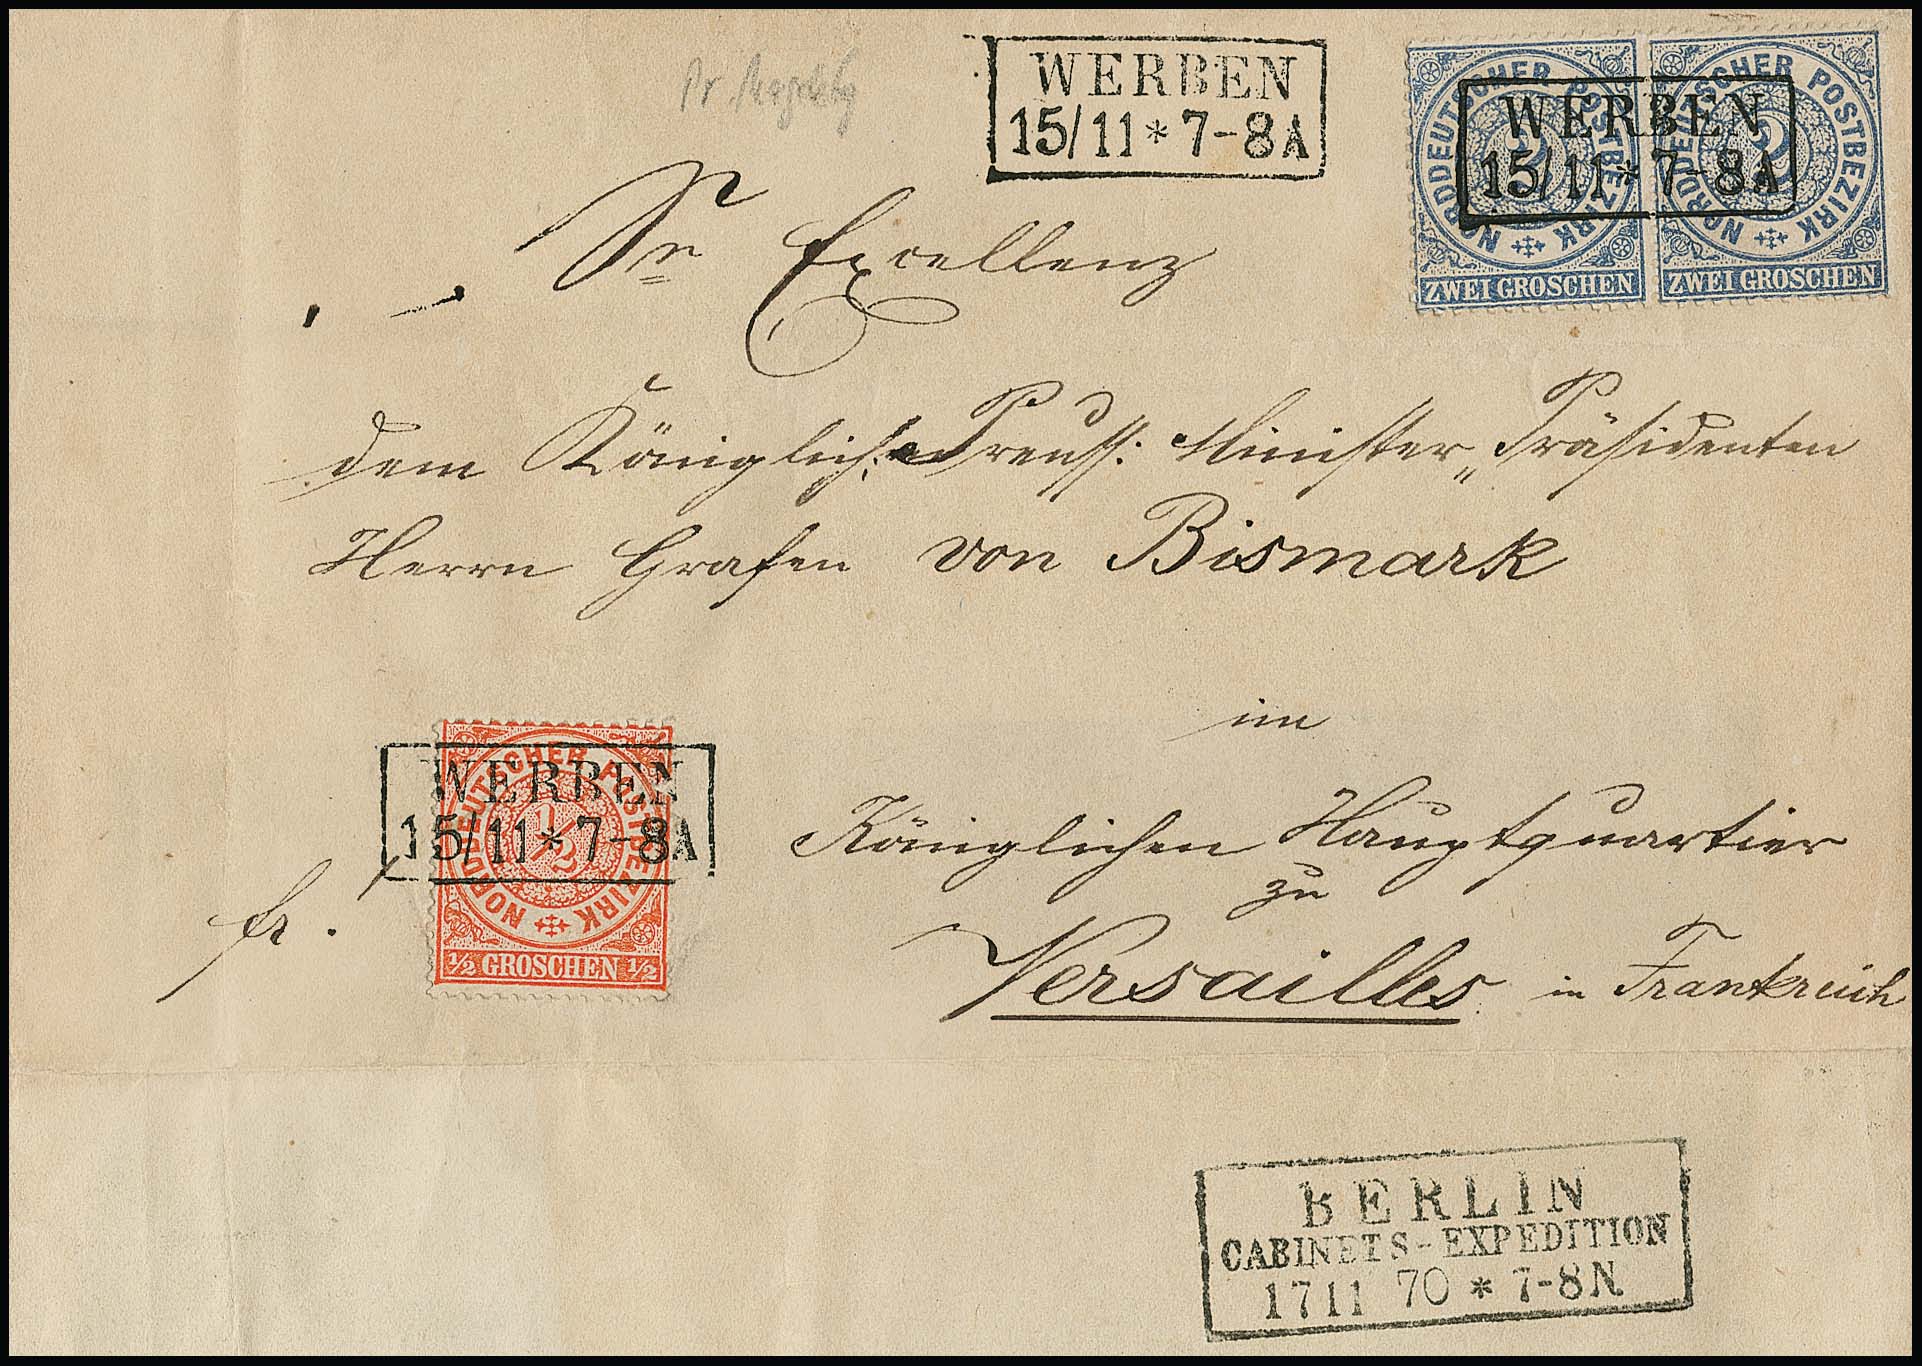 WERBEN
15/11 * 7-8A
NORDDEUTSCHER POSTBEZIRK
ZWEI GROSCHEN
NORDDEUTSCHER POSTBEZIRK
ZWEI GROSCHEN
WERBEN
15/11 * 7-8A
Sr Excellenz
dem Königlich: Preuss: Minister „ Präsidenten
Herrn Grafen von Bismark
im
Königlichen Hauptquartier
zu
Versailles in Frankreich
fr.
NORDDEUTSCHER POSTBEZIRK
1/2
1/2 GROSCHEN 1/2
WERBEN
15/11 * 7-8A
BERLIN
CABINETS-EXPEDITION
17 11 70 * 7-8N